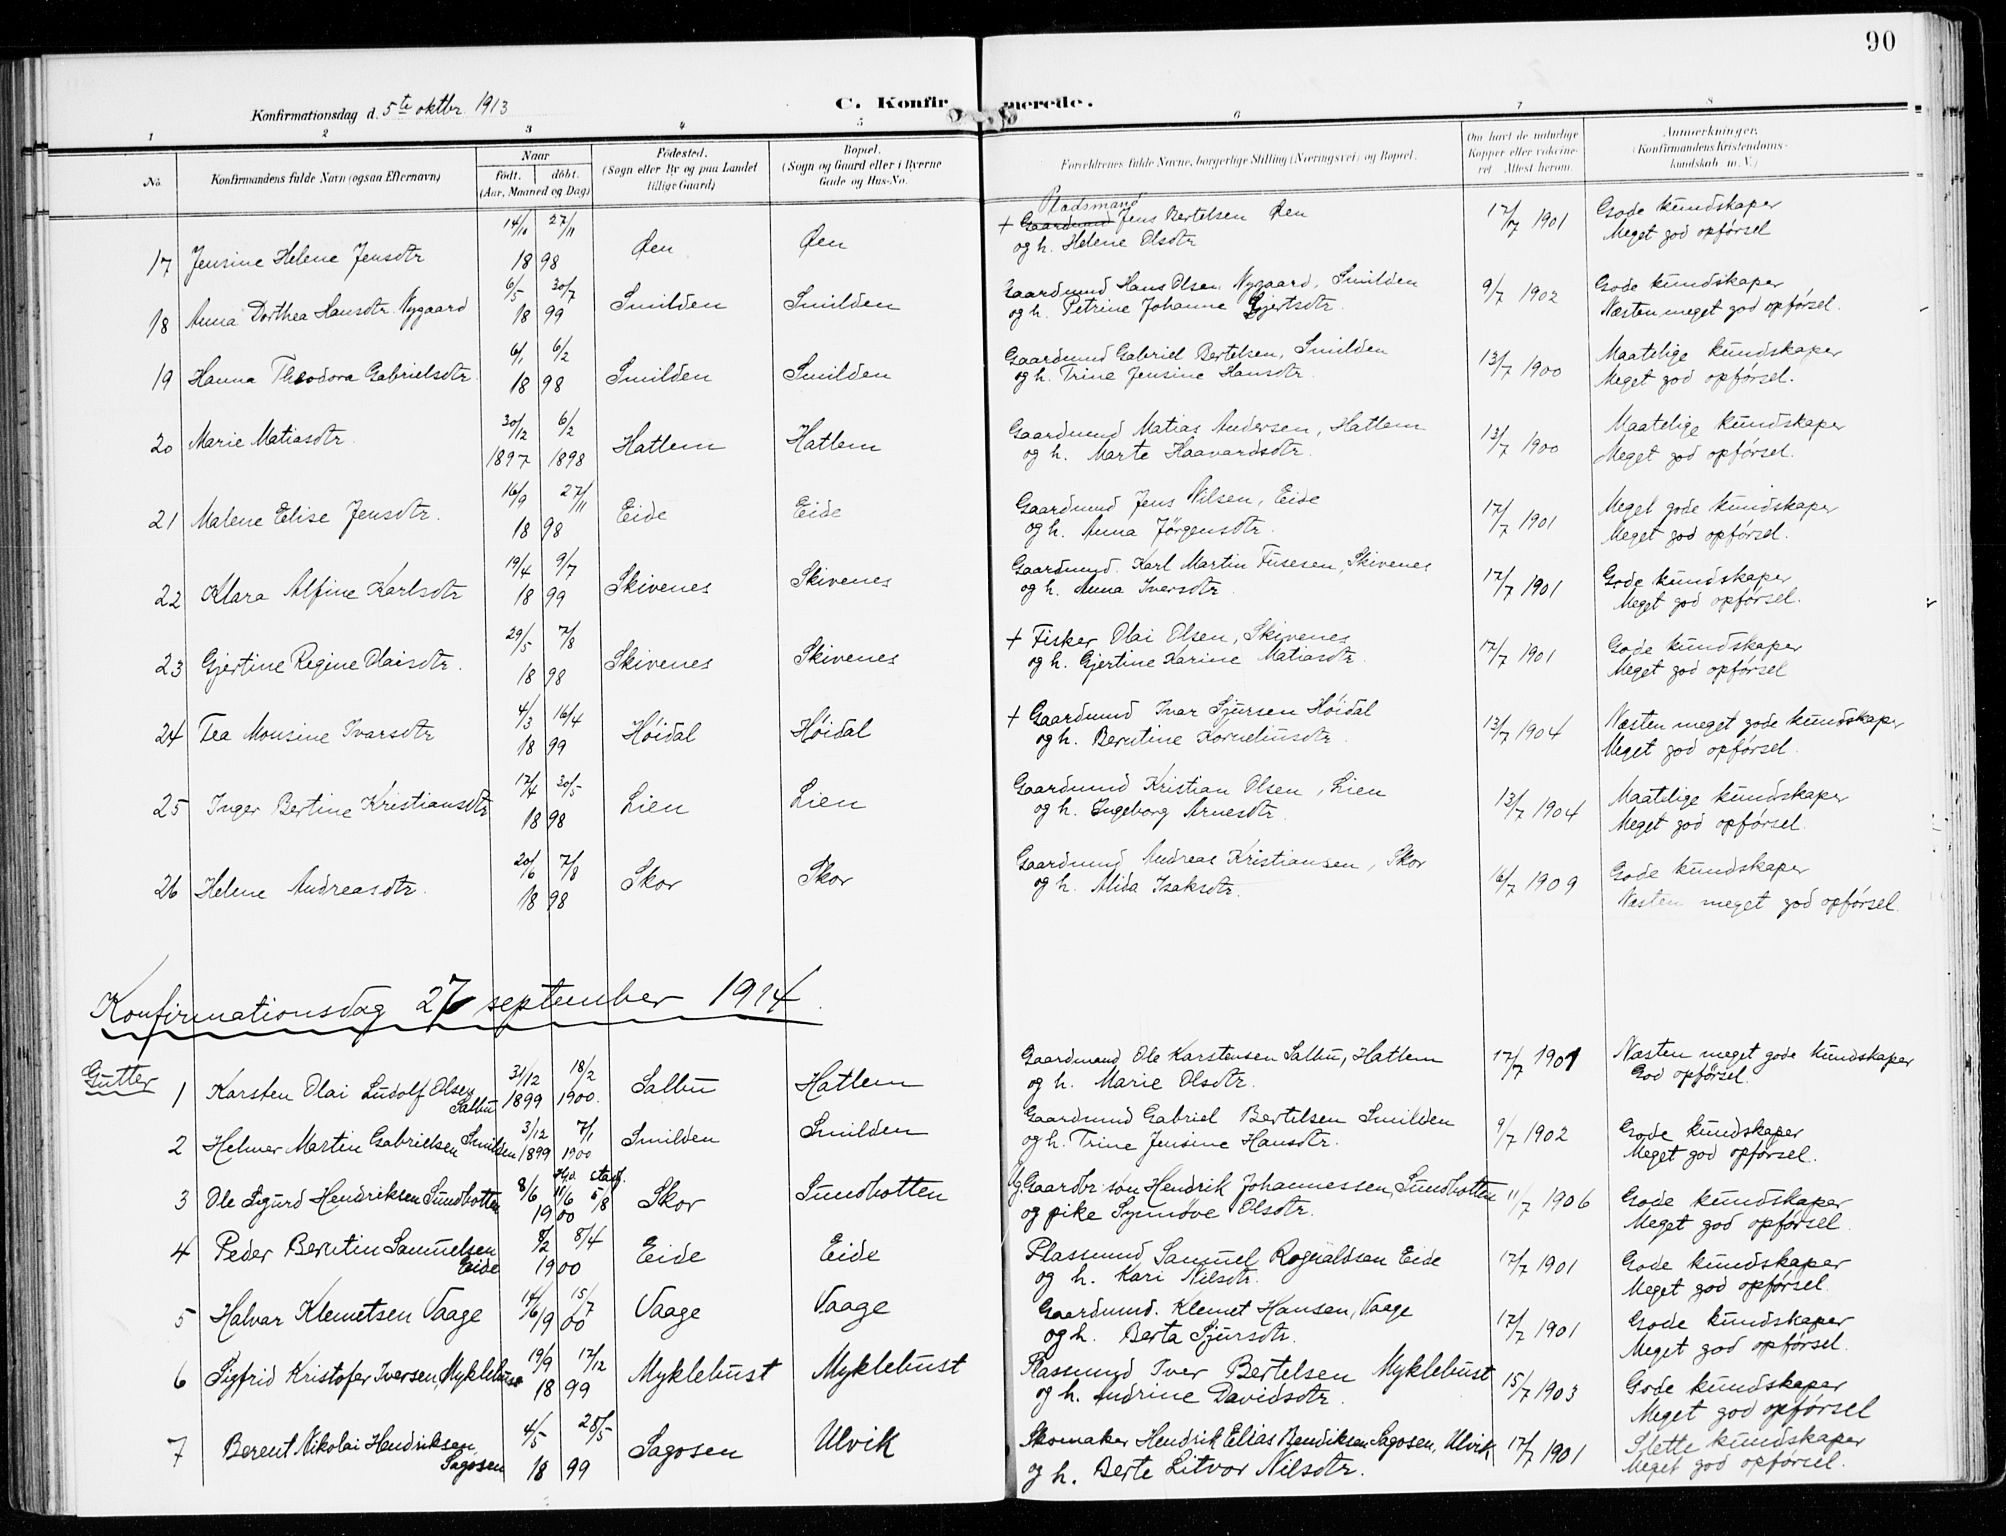 90
Konfirmationsdag d. 5te oktbr. 1913
C. Konfirmerede.
1 2 3 4 5 6 7 8
No.
Konfirmandens fulde Navn (ogsaa Efternavn)
Naar
födt. döbt.
(Aar, Maaned og Dag)
Födested.
(Sogn eller By og paa Landet
tillige Gaard)
Bopæl.
(Sogn og Gaard eller i Byerne
Gade og Hus-No.
Forældrenes fulde Navne, borgerlige Stilling (Næringsvei) og Bopæl.
Om havt de naturlige
Kopper eller vakcine-
ret. Attest herom.
Anmærkninger.
(Konfirmandens Kristendoms-
kundskab m. V.)
17 Jensine Helene Jensdtr 14/10 27/11 1898 Øen Øen + Gaardmand Pladsmand Jens Bertelsen Øen 17/7 1901 Gode kundskaper
og h. Helene Olsdtr Meget god opförsel
18 Anna Dorthea Hansdtr. Nygaard 6/5 30/7 1899 Smilden Smilden Gaardmand Hans Olsen Nygaard, Smilden 9/7 1902 Gode kundskaper
og h. Petrine Johanne Gjertsdtr. Næsten meget god opförsel.
19 Hanna Theodora Gabrielsdtr. 6/1 6/2 1898 Smilden Smilden Gaardmand Gabriel Bertelsen, Smilden 13/7 1900 Maatelige kundskaper
og h. Trine Jensine Hansdtr. Meget god opförsel.
20 Marie Matiasdtr. 30/12 1897 6/2 1898 Hatlem Hatlem Gaardmand Matias Andersen, Hatlem 13/7 1900 Maatelige kundskaper
og h. Marte Haavardsdtr. Meget god opförsel.
21 Malene Elise Jensdtr. 16/9 27/11 1898 Eide Eide Gaardmand Jens Nilsen, Eide 17/7 1901 Meget gode kundskaper
og h. Anna Jörgensdtr. Meget god opförsel.
22 Klara Alfine Karlsdtr 19/4 9/7 1899 Skivenes Skivenes Gaardmand. Karl Martin Fusesen, Skivenes 17/7 1901 Gode kundskaper
og h. Anna Iversdtr. Meget god opförsel.
23 Gjertine Regine Olaisdtr. 29/5 7/8 1898 Skivenes Skivenes + Fisker Olai Olsen, Skivenes 17/7 1901 Gode kundskaper
og h. Gjertine Karine Matiasdtr. Meget god opförsel
24 Tea Monsine Ivarsdtr 4/3 16/4 1899 Höidal Höidal + Gaardmand Ivar Sjursen Höidal 13/7 1904 Næsten meget gode kundskaper
og h. Berntine Korneliusdtr. Meget god opförsel.
25 Inger Bertine Kristiansdtr 17/4 30/5 1898 Lien Lien Gaardmand Kristian Olsen, Lien 13/7 1904 Maatelige kundskaper
og h. Ingeborg Arnesdtr. Meget god opförsel.
26 Helene Andreasdtr. 20/6 7/8 1898 Skor Skor Gaardmand Andreas Kristiansen, Skor 16/7 1909 Gode kundskaper
og h. Alida Isaksdtr. Næsten meget god opförsel.
Konfirmationsdag 27 september 1914.
Gutter
1 Karsten Olai Ludolf Olsen Salbu 31/12 1899 18/2 1900. Salbu Hatlem Gaardmand Ole Karstensen Salbu, Hatlem 17/7 1901 Næsten meget gode kundskaper
og h. Marie Olsdtr. God opförsel.
2 Helmer Martin Gabrielsen Smilden 3/12 1899 7/1 1900 Smilden Smilden Gaardmand Gabriel Bertelsen Smilden 9/7 1902 Gode kundskaper
og h. Trine Jensine Hansdtr. Meget god opförsel.
3 Ole Sigurd Hendriksen Sundbotten 8/6 Hjd. 11/6 stadf. 5/8 1900 Skor Sundbotten Ug. Gaardbr. søn Hendrik Johannessen, Sundbotten 11/7 1906 Gode kundskaper
og pike Synnøve Olsdtr. Meget god opförsel.
4 Peder Berntin Samuelsen Eide 8/2 8/4 1900 Eide Eide Plassmand Samuel Rognaldsen Eide 17/7 1901 Gode kundskaper
og h. Kari Nilsdtr. Meget god opförsel.
5 Halvar Klemetsen Vaage 15/7 Vaage Vaage Gaardmand. Klemet Hansen, Vaage 17/7 1901 Gode kundskaper
og h. Berta Sjursdtr. Meget god opförsel.
6 Sigfrid Kristofer Iversen, Myklebust 19/9 17/12 1899 Myklebust Myklebust Plassmand Iver Bertelsen Myklebust 15/7 1903 Gode kundskaper
og h. Andrine Davidsdtr. Meget god opförsel
7 Berent Nikolai Hendriksen Sagosen 4/5 28/5 1899 Sagosen Ulvik Skomaker Hendrik Elias Bendiksen Sagosen, Ulvik 17/7 1901 Slette kundskaper
og h. Berte Litvor Nilsdtr. Meget god opförsel.